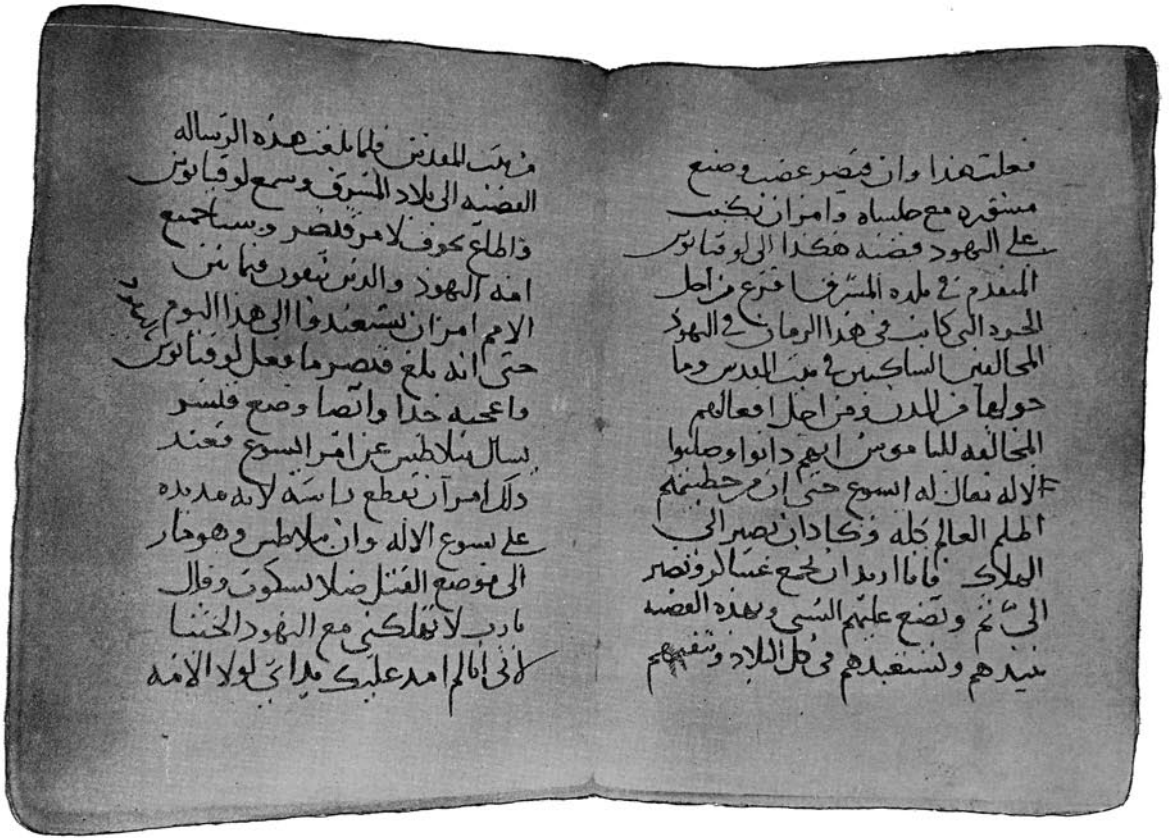 فعلت هذا وان قيصر غضب وصنع
مشوره مع جلساه وامر ان تكتب
على اليهود قضيه هكذا الى لوقيانوس
المتقدم في بلده المشرف افزع من اجل
الجنود التى كانت في هذا الزمان في اليهود
المخالفين الساكنين في بيت المقدس وما
حولها من المدن ومن اجل افعالهم
المخالفه للناموس انهم دانوا وصلبوا
الاله يقال له ايسوع حتى ان من خطيتهم
اظلم العالم كله وكاد ان يصير الى
الهلاك فانا اريد ان تجمع عساكر وتصير
الى ثم وتضع عليهم السبى وبهذه القضيه
تبيدهم وتستعبدهم في كل البلاد وتنفيهم
من بيت المقدس فلما بلغت هذه الرساله
القضيه الى بلاد المشرق وسمع لوقيانوس
واطاع بخوف لامر قيصر وسبا جميع
امه اليهود والدين تبقون فيما بين
الامم امر ان يستعبدوا الى هذا اليوم
حتى انه بلغ قيصر ما فعل لوقيانوس باليهود
فاعجبه جدا وايضا وضع قيصر
يسال بيلاطس عن امر ايسوع فعند
ذلك امر ان تقطع راسه لانه مد يده
على يسوع الاله وان بيلاطس وهو جاز
الى موضع القتل صلا بسكوت وقال
يارب لا تهلكني مع اليهود الخبثا
لاني انا لم امد عليك يداي لولا الامه